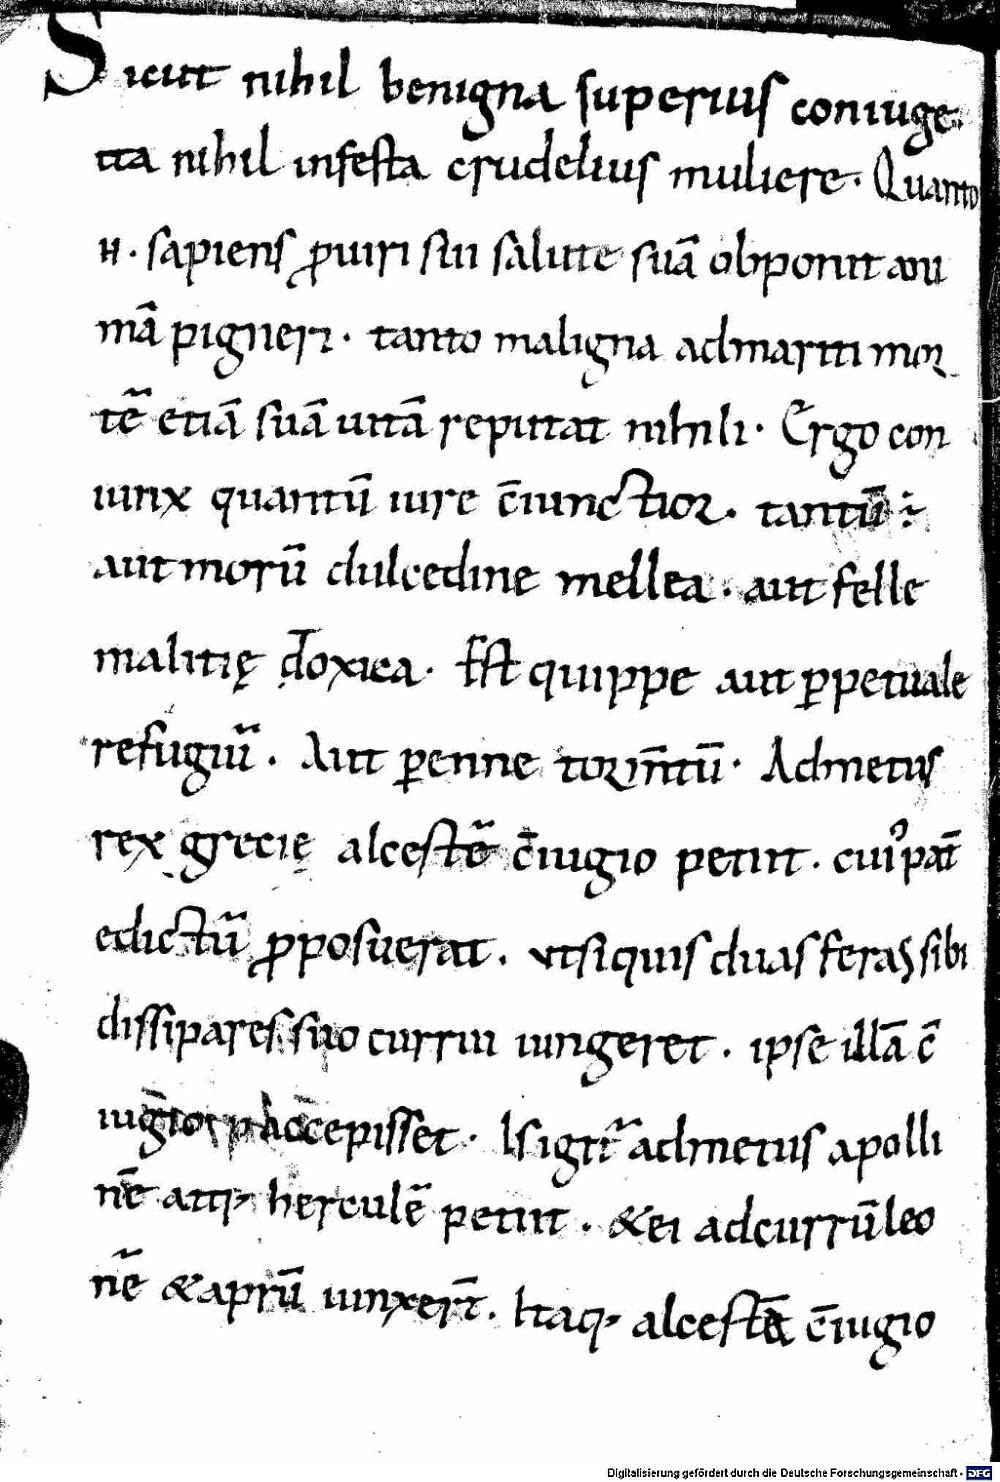 Sicut nihil benigna superius coniuge.
ita nihil infesta crudelius muliere. Quanto
N. sapiens ꝓ uiri sui salute suā obponit ani
mā pigneri. tanto maligna ad mariti mor
tē etiā suā uitā reputat nihili. Ergo con
iunx quantū iure c̄iunctior. tantū ÷
aut morū dulcedine mellea. aut felle
malitię doxica. Est quippe aut ꝑpetuale
refugiū. Aut ꝑenne torm̄tū. Admetus
rex grecię alcestē c̄iugio petiit. cuiꝰ pat̄
edictū ꝓposuerat. ut si quis duas feras sibi
dissipares suo currui iungeret. ipse illā c̄
iugio accepisset. Isigit̄ admetus apolli
nē atq; herculē petiit. & ei ad currū leo
nē & aprū iunxer̄t. Itaq; alcestā c̄iugio
Digitalisierung gefördert durch die Deutsche Forschungsgemeinschaft - DFG